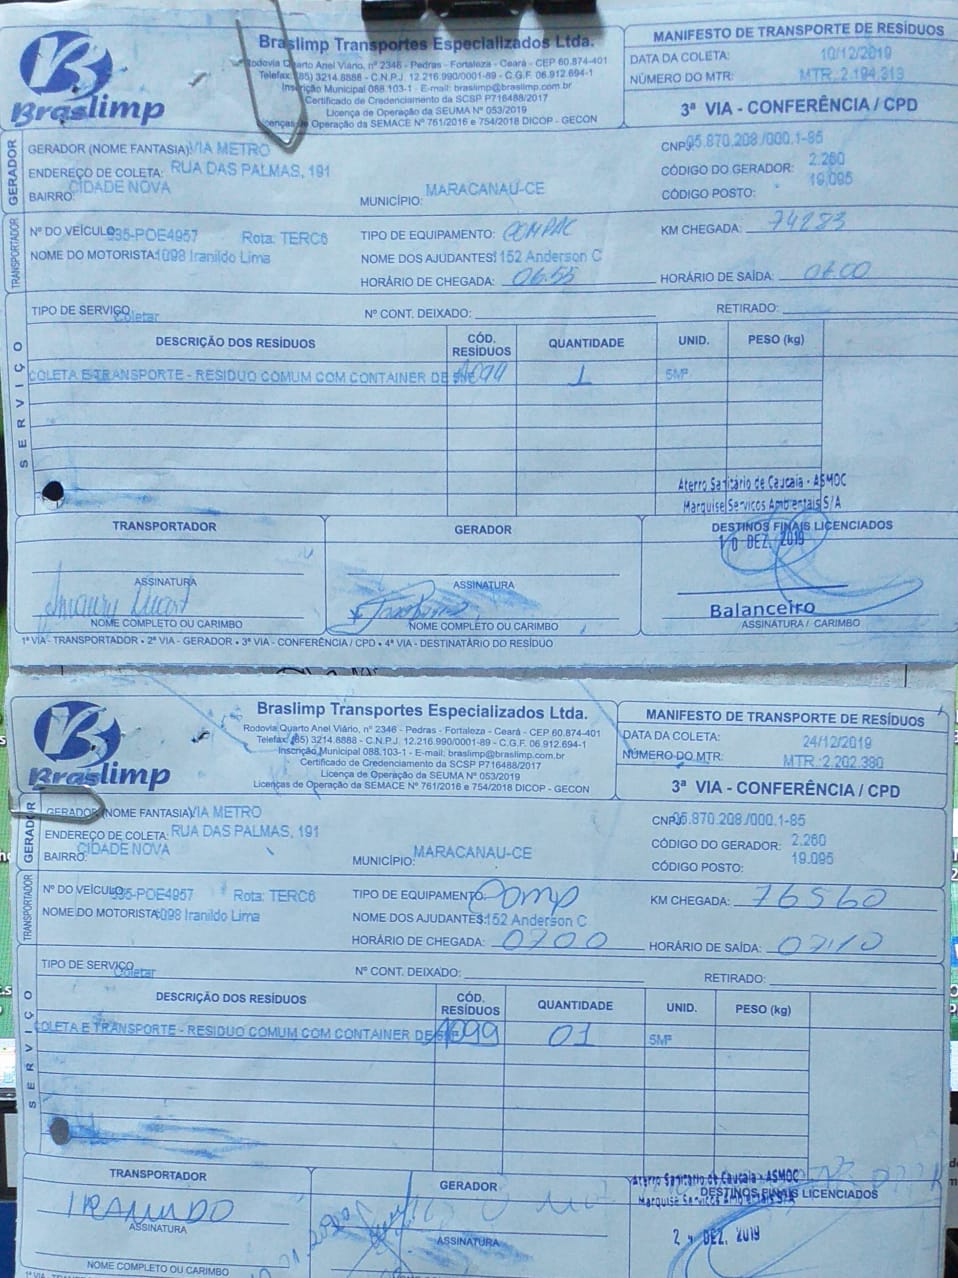 Braslimp
Braslimp Transportes Especializados Ltda.
Rodovia Quarto Anel Viário, nº 2346 - Pedras - Fortaleza - Ceará - CEP 60.874-401
Telefax: (85) 3214.8888 - C.N.P.J. 12.216.990/0001-89 - C.G.F. 06.912.694-1
Inscrição Municipal 088.103-1 - E-mail: braslimp@braslimp.com.br
Certificado de Credenciamento da SCSP P716488/2017
Licença de Operação da SEUMA Nº 053/2019
Licenças de Operação da SEMACE Nº 761/2016 e 754/2018 DICOP - GECON
MANIFESTO DE TRANSPORTE DE RESÍDUOS
DATA DA COLETA: 10/12/2019
NÚMERO DO MTR: MTR. 2.194.313
3ª VIA - CONFERÊNCIA / CPD
GERADOR
GERADOR (NOME FANTASIA) VIA METRO
ENDEREÇO DE COLETA: RUA DAS PALMAS, 191
BAIRRO: CIDADE NOVA
MUNICÍPIO: MARACANAU-CE
CNPJ 05.870.208 /000.1-85
CÓDIGO DO GERADOR: 2.260
CÓDIGO POSTO: 19.095
TRANSPORTADOR
Nº DO VEÍCULO 935-POE4957 Rota: TERC6
TIPO DE EQUIPAMENTO: COMPAC
KM CHEGADA: 74283
NOME DO MOTORISTA: 1098 Iranildo Lima
NOME DOS AJUDANTES: 152 Anderson C
HORÁRIO DE CHEGADA: 06:55
HORÁRIO DE SAÍDA: 07:00
SERVIÇO
TIPO DE SERVIÇO Coletar
Nº CONT. DEIXADO:
RETIRADO:
DESCRIÇÃO DOS RESÍDUOS CÓD. RESÍDUOS QUANTIDADE UNID. PESO (kg)
COLETA E TRANSPORTE - RESIDUO COMUM COM CONTAINER DE 5M³ A099 1 5M³
Aterro Sanitário de Caucaia - ASMOC
Marquise Serviços Ambientais S/A
TRANSPORTADOR GERADOR DESTINOS FINAIS LICENCIADOS
10 DEZ. 2019
ASSINATURA ASSINATURA
Balanceiro
NOME COMPLETO OU CARIMBO NOME COMPLETO OU CARIMBO ASSINATURA / CARIMBO
1ª VIA - TRANSPORTADOR • 2ª VIA - GERADOR • 3ª VIA - CONFERÊNCIA / CPD • 4ª VIA - DESTINATÁRIO DO RESÍDUO
Braslimp
Braslimp Transportes Especializados Ltda.
Rodovia Quarto Anel Viário, nº 2346 - Pedras - Fortaleza - Ceará - CEP 60.874-401
Telefax: (85) 3214.8888 - C.N.P.J. 12.216.990/0001-89 - C.G.F. 06.912.694-1
Inscrição Municipal 088.103-1 - E-mail: braslimp@braslimp.com.br
Certificado de Credenciamento da SCSP P716488/2017
Licença de Operação da SEUMA Nº 053/2019
Licenças de Operação da SEMACE Nº 761/2016 e 754/2018 DICOP - GECON
MANIFESTO DE TRANSPORTE DE RESÍDUOS
DATA DA COLETA: 24/12/2019
NÚMERO DO MTR: MTR. 2.202.380
3ª VIA - CONFERÊNCIA / CPD
GERADOR
GERADOR (NOME FANTASIA) VIA METRO
ENDEREÇO DE COLETA: RUA DAS PALMAS, 191
BAIRRO: CIDADE NOVA
MUNICÍPIO: MARACANAU-CE
CNPJ 05.870.208 /000.1-85
CÓDIGO DO GERADOR: 2.260
CÓDIGO POSTO: 19.095
TRANSPORTADOR
Nº DO VEÍCULO 935-POE4957 Rota: TERC6
TIPO DE EQUIPAMENTO: Comp
KM CHEGADA: 76560
NOME DO MOTORISTA 1098 Iranildo Lima
NOME DOS AJUDANTES: 152 Anderson C
HORÁRIO DE CHEGADA: 0700
HORÁRIO DE SAÍDA: 07:10
SERVIÇO
TIPO DE SERVIÇO Coletar
Nº CONT. DEIXADO:
RETIRADO:
DESCRIÇÃO DOS RESÍDUOS CÓD. RESÍDUOS QUANTIDADE UNID. PESO (kg)
COLETA E TRANSPORTE - RESIDUO COMUM COM CONTAINER DE 5M³ A099 01 5M³
TRANSPORTADOR GERADOR
Aterro Sanitário de Caucaia - ASMOC
DESTINOS FINAIS LICENCIADOS
Marquise Serviços Ambientais S/A
IRANILDO
ASSINATURA ASSINATURA
24 DEZ. 2019
NOME COMPLETO OU CARIMBO